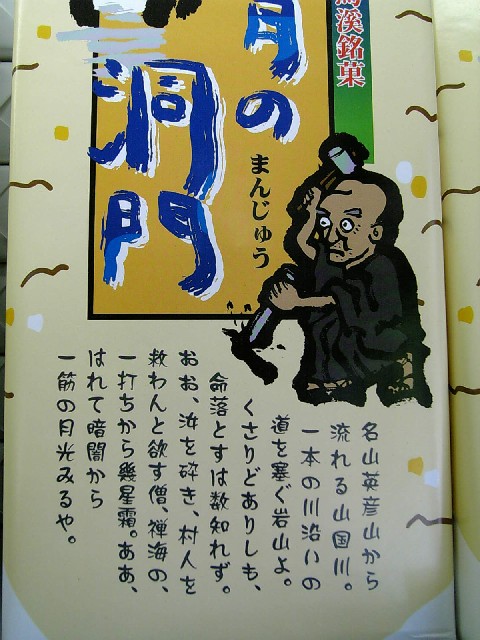 馬溪銘菓
青の
洞門
まんじゅう
名山英彦山から
流れる山国川。
一本の川沿いの
道を塞ぐ岩山よ。
くさりどありしも、
命落とすは数知れず。
おお、汝を砕き、村人を
救わんと欲す僧、禅海の、
一打ちから幾星霜。ああ、
はれて暗闇から
一筋の月光みるや。